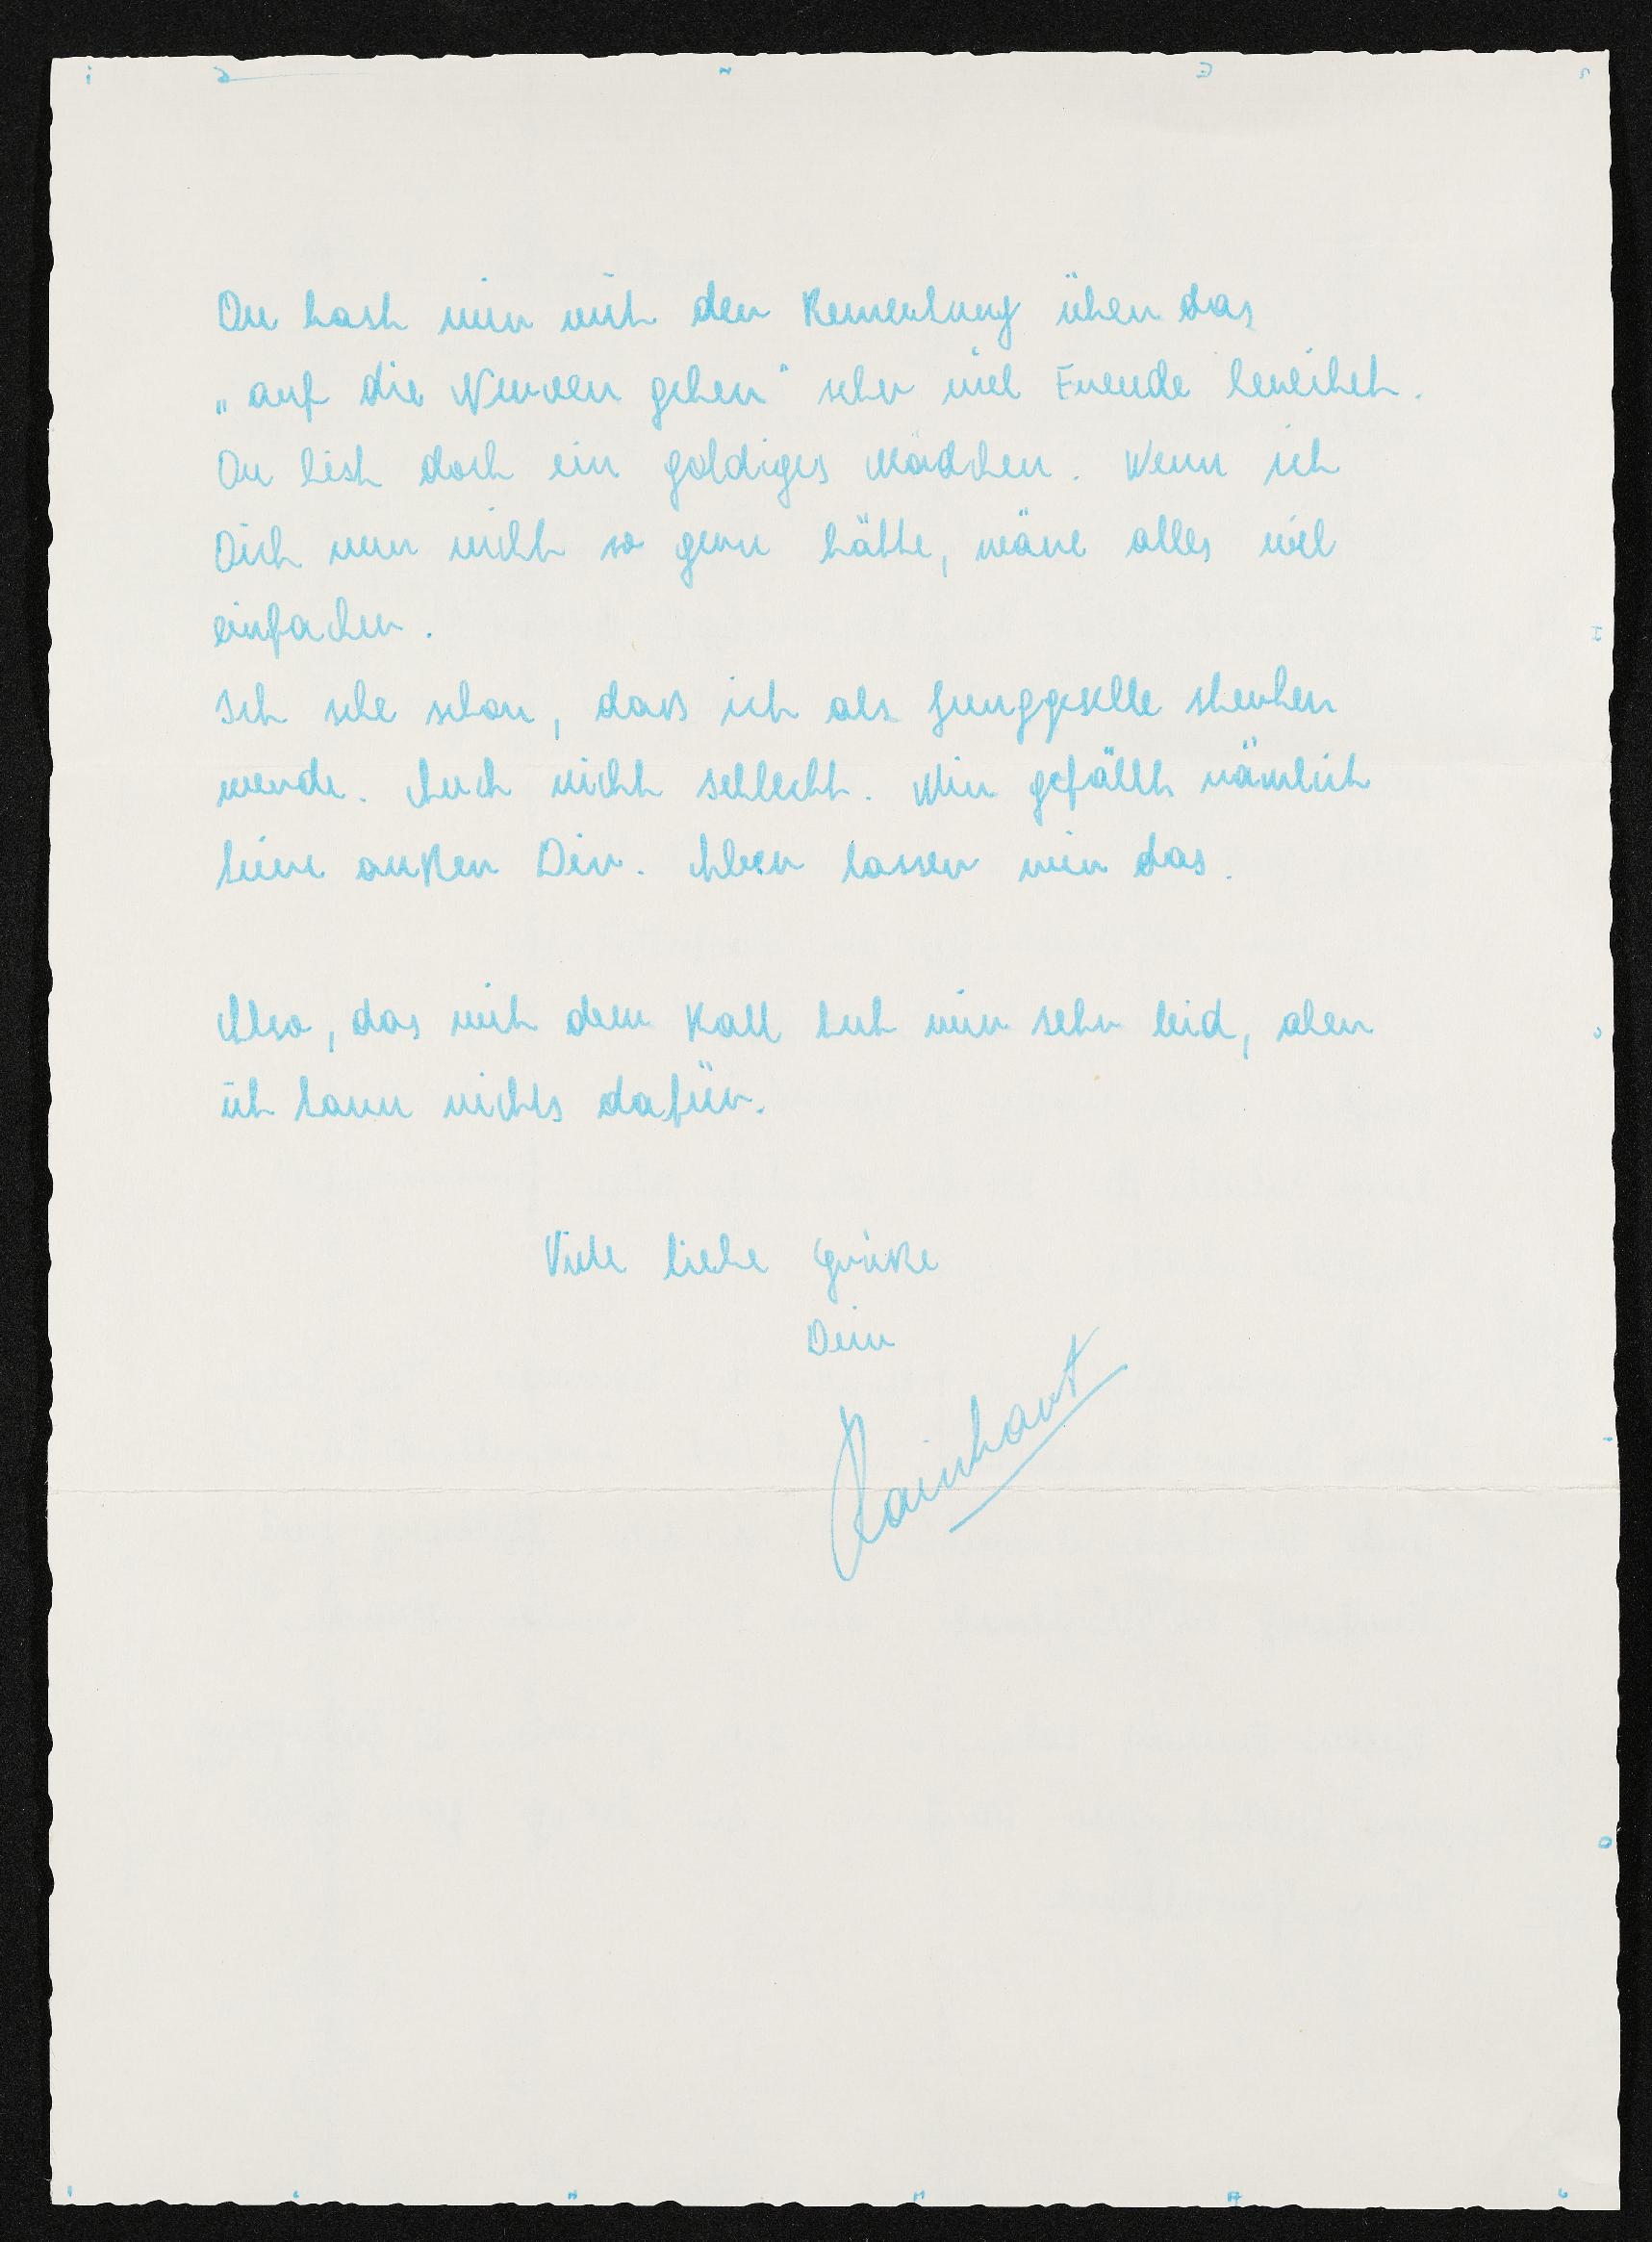 Du hast mir mit der Bemerkung über das
„auf die Nerven gehen" sehr viel Freude bereitet.
Du bist doch ein goldiges Mädchen. Wenn ich
Dich nur nicht so gern hätte, wäre alles viel
einfacher.
Ich sehe schon, daß ich als Junggeselle sterben
werde. Auch nicht schlecht. Mir gefällt nämlich
keine außer Dir. Aber lassen wir das.
Also, das mit dem Kall tut mir sehr leid, aber
ich kann nichts dafür.
Viele liebe Grüße
Dein
Rainhart